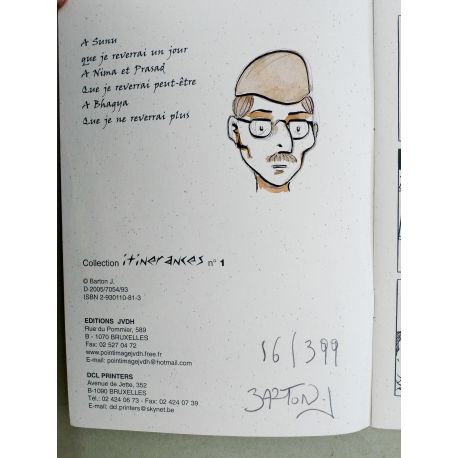 A Sunu
que je reverrai un jour
A Nima et Prasad
Que je reverrai peut-être
A Bhagya
Que je ne reverrai plus
Collection itinerances n° 1
© Barton J.
D 2005/7054/93
ISBN 2-930110-81-3
EDITIONS JVDH
Rue du Pommier, 589
B - 1070 BRUXELLES
Fax: 02 527 04 72
www.pointimagejvdh.free.fr
E-mail: pointimagejvdh@hotmail.com
DCL PRINTERS
Avenue de Jette, 352
B-1090 BRUXELLES
Tél.: 02 424 06 73 - Fax: 02 424 07 39
E-mail: dcl.printers@skynet.be
16/399
BARTON.J